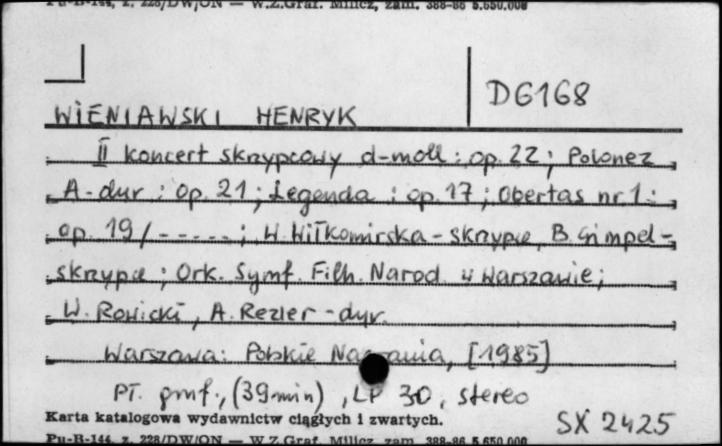 Pu-B-144, z. 228/DW/ON — W.Z.Graf. Milicz, zam. 388-86 5.650.000
D6168
WIENIAWSKI HENRYK
II koncert skrzypcowy d-moll : op. 22 ; Polonez
A-dur : op. 21 ; Legenda : op. 17 ; Obertas nr 1 :
op. 19 / - - - - - ; W. Wiłkomirska - skrzypce, B. Gimpel -
skrzypce ; Ork. Symf. Filh. Narod. w Warszawie ;
W. Rowicki, A. Rezler - dyr.
Warszawa : Polskie Nagrania, [1985]
PŁ. gmf., (39 min), LP 30, stereo
Karta katalogowa wydawnictw ciągłych i zwartych.
SX 2425
Pu-B-144, z. 228/DW/ON — W.Z.Graf. Milicz, zam. 388-86 5.650.000